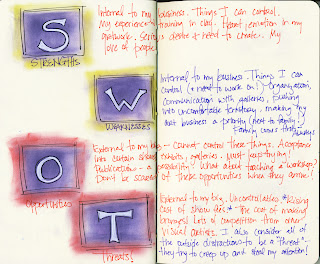 S
STRENGTHS
Internal to my business. Things I can control.
My experience training in clay. Hand precision in my
artwork. desire + need to create. My
love of people.
W
WEAKNESSES
Internal to my business. Things I can
control (+ need to work on!) Organization,
communication with galleries, pushing
into uncomfortable territory, making my
art business a priority (next to family).
Family comes first always!
O
Opportunities
External to my biz - Cannot control these things. Acceptance
into certain shows, exhibits, galleries. Must keep trying!
Publication - a possibility. What about teaching a workshop?
Don't be scared of these opportunities when they arrive!
T
Threats!
External to my biz. Uncontrollables * Rising
cost of show fees * The cost of making
ceramics! Lots of competition from other
visual artists. I also consider all of
the outside distractions to be a "threat" -
they try to creep up and steal my attention!